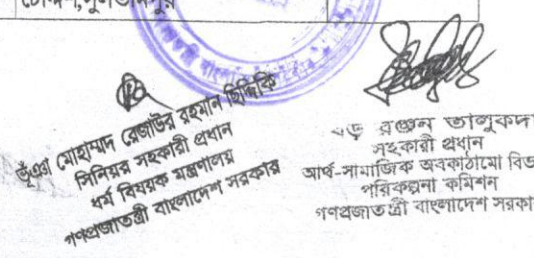 চৌদ্দশ,সুলতানপুর
ভূঁঞা মোহাম্মদ রেজাউর রহমান ছিদ্দিকি
সিনিয়র সহকারী প্রধান
ধর্ম বিষয়ক মন্ত্রণালয়
গণপ্রজাতন্ত্রী বাংলাদেশ সরকার
রঞ্জন তালুকদা
সহকারী প্রধান
আর্থ-সামাজিক অবকাঠামো বিভ
পরিকল্পনা কমিশন
গণপ্রজাতন্ত্রী বাংলাদেশ সরকা